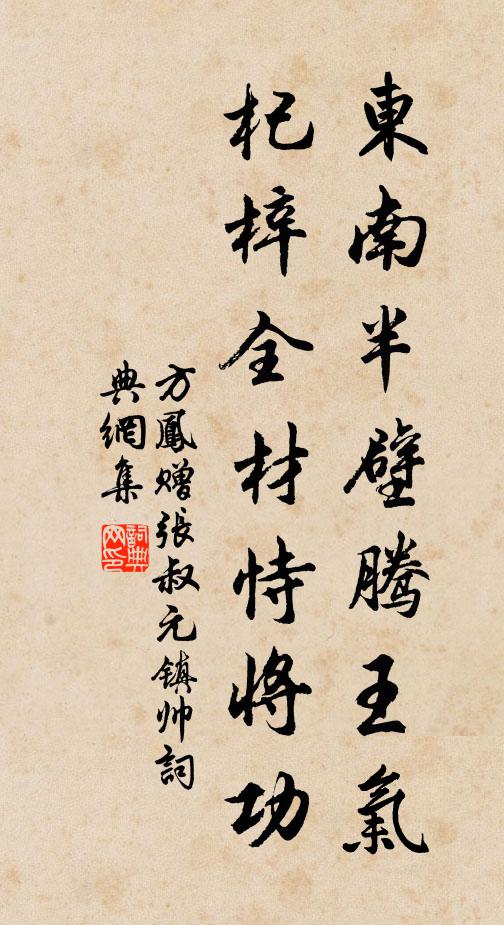 東南半壁騰王氣
杞梓全材恃將功
方鳳贈張叔元鎮帅詞
典網集
詞典
网印